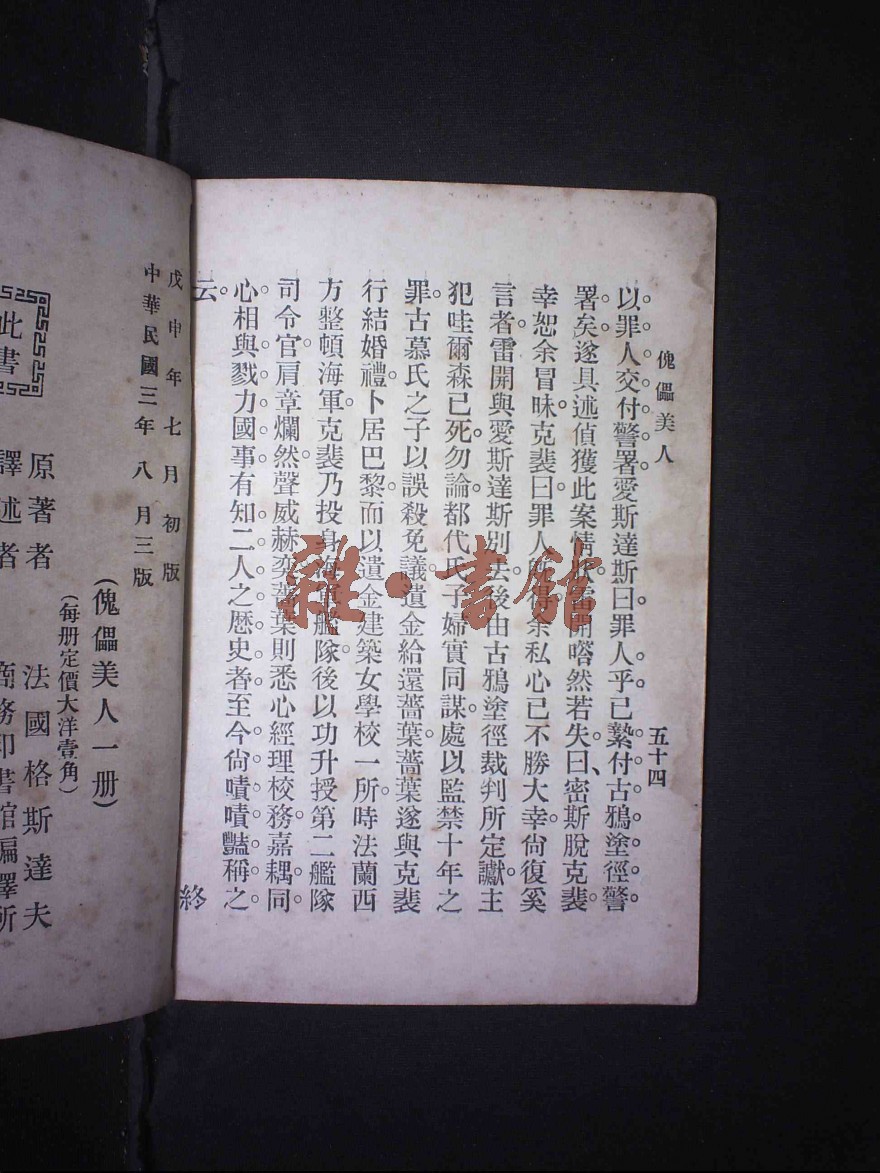 傀儡美人
五十四
以罪人交付警署愛斯達斯曰罪人乎已縶付古鴉塗徑警
署矣遂具述偵獲此案情狀雷開嗒然若失曰密斯脫克裴
幸恕余冒昧克裴曰罪人所得余私心已不勝大幸尙復奚
言者雷開與愛斯達斯別去後由古鴉塗徑裁判所定讞主
犯哇爾森已死勿論都代氏子婦實同謀處以監禁十年之
罪古慕氏之子以誤殺免議遺金給還薔葉薔葉遂與克裴
行結婚禮卜居巴黎而以遺金建築女學校一所時法蘭西
方整頓海軍克裴乃投身海軍艦隊後以功升授第二艦隊
司令官肩章爛然聲威赫奕薔葉則悉心經理校務嘉耦同
心相與戮力國事有知二人之歷史者至今尙嘖嘖豔稱之
云
終
雜·書館
戊申年七月初版
中華民國三年八月三版
(傀儡美人一册)
(每册定價大洋壹角)
原著者 法國格斯達夫
譯述者 商務印書館編譯所
此書